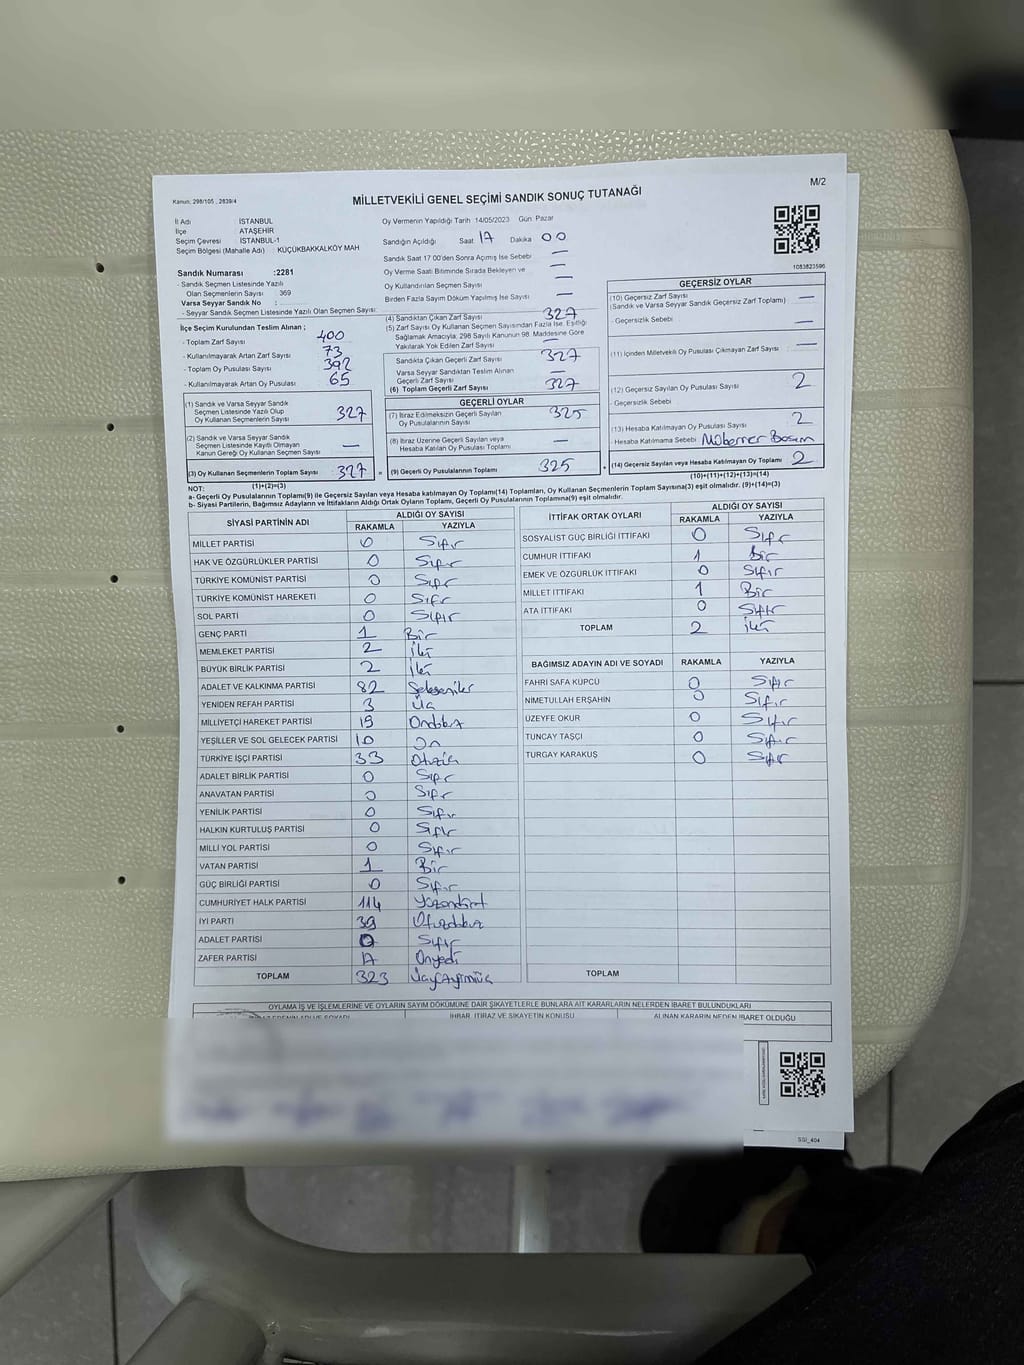 M/2
Kanun: 298/105 , 2839/4
MİLLETVEKİLİ GENEL SEÇİMİ SANDIK SONUÇ TUTANAĞI
İl Adı İSTANBUL
İlçe ATAŞEHİR
Seçim Çevresi İSTANBUL-1
Seçim Bölgesi (Mahalle Adı) : KÜÇÜKBAKKALKÖY MAH
Sandık Numarası :2281
- Sandık Seçmen Listesinde Yazılı
Olan Seçmenlerin Sayısı : 369
Varsa Seyyar Sandık No :
- Seyyar Sandık Seçmen Listesinde Yazılı Olan Seçmen Sayısı:
İlçe Seçim Kurulundan Teslim Alınan ;
- Toplam Zarf Sayısı 400
- Kullanılmayarak Artan Zarf Sayısı 73
- Toplam Oy Pusulası Sayısı 392
- Kullanılmayarak Artan Oy Pusulası 65
(1) Sandık ve Varsa Seyyar Sandık
Seçmen Listesinde Yazılı Olup
Oy Kullanan Seçmenlerin Sayısı 327
(2) Sandık ve Varsa Seyyar Sandık
Seçmen Listesinde Kayıtlı Olmayan
Kanun Gereği Oy Kullanan Seçmen Sayısı —
(3) Oy Kullanan Seçmenlerin Toplam Sayısı 327 =
(1)+(2)=(3)
Oy Vermenin Yapıldığı Tarih 14/05/2023 Gün Pazar
Sandığın Açıldığı Saat 17 Dakika 00
Sandık Saat 17 00'den Sonra Açımış İse Sebebi —
Oy Verme Saati Bitiminde Sırada Bekleyen ve —
Oy Kullandırılan Seçmen Sayısı —
Birden Fazla Sayım Döküm Yapılmış İse Sayısı —
(4) Sandıktan Çıkan Zarf Sayısı 327
(5) Zarf Sayısı Oy Kullanan Seçmen Sayısından Fazla İse, Eşitliği
Sağlamak Amacıyla; 298 Sayılı Kanunun 98. Maddesine Göre
Yakılarak Yok Edilen Zarf Sayısı —
Sandıkta Çıkan Geçerli Zarf Sayısı 327
Varsa Seyyar Sandıktan Teslim Alınan
Geçerli Zarf Sayısı —
(6) Toplam Geçerli Zarf Sayısı 327
GEÇERLİ OYLAR
(7) İtiraz Edilmeksizin Geçerli Sayılan
Oy Pusulalarının Sayısı 325
(8) İtiraz Üzerine Geçerli Sayılan veya
Hesaba Katılan Oy Pusulası Toplamı —
(9) Geçerli Oy Pusulalarının Toplamı 325 +
1083823596
GEÇERSİZ OYLAR
(10) Geçersiz Zarf Sayısı —
(Sandık ve Varsa Seyyar Sandık Geçersiz Zarf Toplamı)
- Geçersizlik Sebebi —
(11) İçinden Milletvekili Oy Pusulası Çıkmayan Zarf Sayısı —
(12) Geçersiz Sayılan Oy Pusulası Sayısı 2
- Geçersizlik Sebebi
(13) Hesaba Katılmayan Oy Pusulası Sayısı 2
- Hesaba Katılmama Sebebi
(14) Geçersiz Sayılan veya Hesaba Katılmayan Oy Toplamı 2
(10)+(11)+(12)+(13)=(14)
NOT:
a- Geçerli Oy Pusulalarının Toplamı(9) ile Geçersiz Sayılan veya Hesaba katılmayan Oy Toplam(14) Toplamları, Oy Kullanan Seçmenlerin Toplam Sayısına(3) eşit olmalıdır. (9)+(14)=(3)
b- Siyasi Partilerin, Bağımsız Adayların ve İttifakların Aldığı Ortak Oyların Toplamı, Geçerli Oy Pusulalarının Toplamına(9) eşit olmalıdır.
SİYASİ PARTİNİN ADI ALDIĞI OY SAYISI
RAKAMLA YAZIYLA
MİLLET PARTİSİ 0 Sıfır
HAK VE ÖZGÜRLÜKLER PARTİSİ 0 Sıfır
TÜRKİYE KOMÜNİST PARTİSİ 0 Sıfır
TÜRKİYE KOMÜNİST HAREKETİ 0 Sıfır
SOL PARTİ 0 Sıfır
GENÇ PARTİ 1 Bir
MEMLEKET PARTİSİ 2 İki
BÜYÜK BİRLİK PARTİSİ 2 İki
ADALET VE KALKINMA PARTİSİ 82 Seksaniki
YENİDEN REFAH PARTİSİ 3 Üç
MİLLİYETÇİ HAREKET PARTİSİ 19 Ondokuz
YEŞİLLER VE SOL GELECEK PARTİSİ 10 On
TÜRKİYE İŞÇİ PARTİSİ 33 Otuzüç
ADALET BİRLİK PARTİSİ 0 Sıfır
ANAVATAN PARTİSİ 0 Sıfır
YENİLİK PARTİSİ 0 Sıfır
HALKIN KURTULUŞ PARTİSİ 0 Sıfır
MİLLİ YOL PARTİSİ 0 Sıfır
VATAN PARTİSİ 1 Bir
GÜÇ BİRLİĞİ PARTİSİ 0 Sıfır
CUMHURİYET HALK PARTİSİ 114 Yüzondört
İYİ PARTİ 39 Otuzdokuz
ADALET PARTİSİ 0 Sıfır
ZAFER PARTİSİ 17 Onyedi
TOPLAM 323 Üçyüzyirmiüç
İTTİFAK ORTAK OYLARI ALDIĞI OY SAYISI
RAKAMLA YAZIYLA
SOSYALİST GÜÇ BİRLİĞİ İTTİFAKI 0 Sıfır
CUMHUR İTTİFAKI 1 Bir
EMEK VE ÖZGÜRLÜK İTTİFAKI 0 Sıfır
MİLLET İTTİFAKI 1 Bir
ATA İTTİFAKI 0 Sıfır
TOPLAM 2 İki
BAĞIMSIZ ADAYIN ADI VE SOYADI RAKAMLA YAZIYLA
FAHRİ SAFA KÜPCÜ 0 Sıfır
NİMETULLAH ERŞAHİN 0 Sıfır
ÜZEYFE OKUR 0 Sıfır
TUNCAY TAŞÇI 0 Sıfır
TURGAY KARAKUŞ 0 Sıfır
TOPLAM
OYLAMA İŞ VE İŞLEMLERİNE VE OYLARIN SAYIM DÖKÜMÜNE DAİR ŞİKAYETLERLE BUNLARA AİT KARARLARIN NELERDEN İBARET BULUNDUKLARI
İHBAR, İTİRAZ VE ŞİKAYETİN KONUSU ALINAN KARARIN NEDEN İBARET OLDUĞU
SSI_404